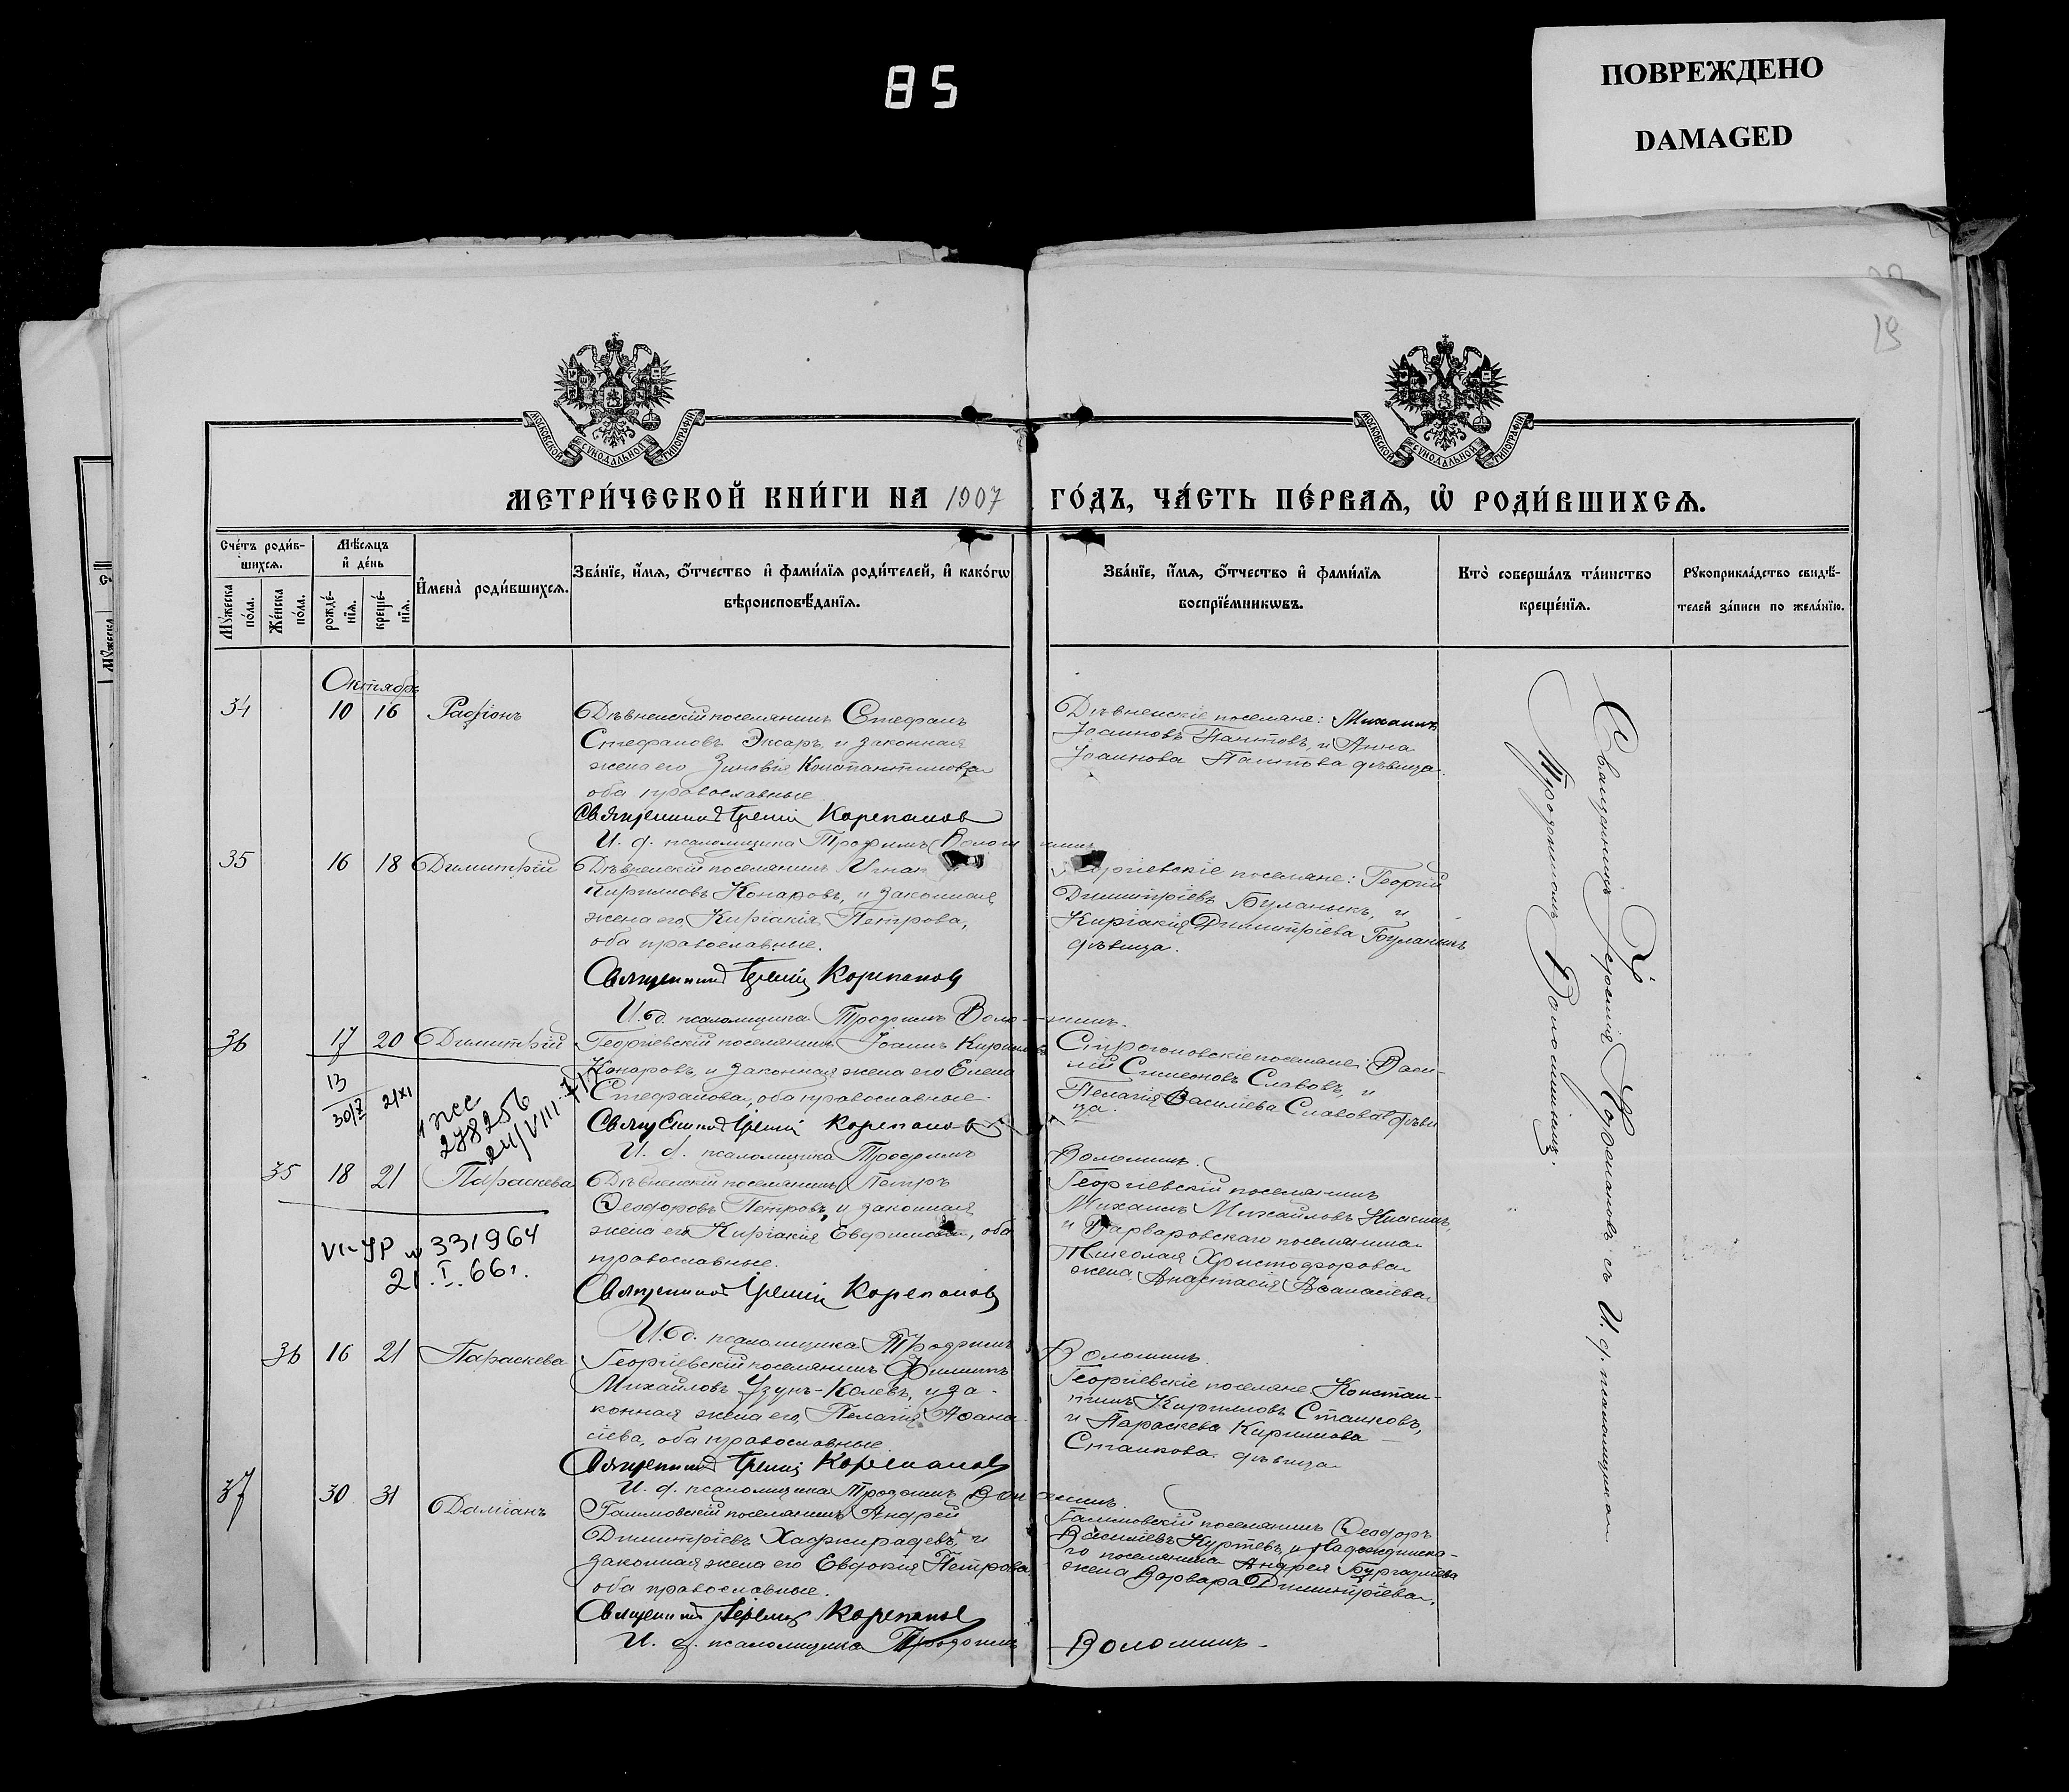 85
ПОВРЕЖДЕНО
DAMAGED
19
МОСКОВСКОЙ СѴНОДАЛЬНОЙ ТИПОГРАФІИ
МОСКОВСКОЙ СѴНОДАЛЬНОЙ ТИПОГРАФІИ
МЕТРИ́ЧЕСКОЙ КНИ́ГИ НА 1907 ГО́ДЪ, ЧА́СТЬ ПЕ́РВАѦ, Ѡ҆ РОДИ́ВШИХСѦ.
Сче́тъ роди́в-
шихсѧ.
Мꙋ́жеска по́ла.
Же́нска по́ла.
Мѣ́сѧцъ
и҆ де́нь
рожде́-
нїѧ.
креще́-
нїѧ.
И҆мена̀ роди́вшихсѧ.
Зва́нїе, и҆́мѧ, ѻ҆́тчество и҆ фами́лїѧ роди́телей, и҆ како́гѡ
вѣроисповѣ́данїѧ.
Зва́нїе, и҆́мѧ, ѻ҆́тчество и҆ фами́лїѧ
воспрїе́мникѡвъ.
Кто̀ соверша́лъ та́инство
креще́нїѧ.
Рꙋкоприкла́дство свидѣ́-
телей за́писи по жела́нїю.
Октябрь
34 10 16 Родіонъ
Дѣвненскій поселянинъ Стефанъ
Стефановъ Экзаръ, и законная
жена его Зиновія Константинова
оба православные
Священникъ Іеремій Корепанов
И. д. псаломщика Трофимъ Волошинъ
Дѣвненскіе поселяне: Михаилъ
Іоанновъ Пантовъ, и Анна
Іоаннова Пантова дѣвица.
35 16 18 Димитрій
Дѣвненскій поселянинъ Игнат
Кирилловъ Конаровъ, и законная
жена его Киріакія Петрова,
оба православные.
Священникъ Іеремій Корепанов
И. д. псаломщика Трофимъ Волошинъ.
Георгіевскіе поселяне: Георгій
Димитріевъ Буланыкъ, и
Киріакія Димитріева Буланыкъ
дѣвица.
36 17 20 Димитрій
13
30/X 2/XI
278256
Георгіевскій поселянинъ Іоаннъ Кирилловъ
Конаровъ, и законная жена его Елена
Стефанова, оба православные.
Священникъ Іеремій Корепанов
И. д. псаломщика Трофимъ Волошинъ.
Строгоновскіе поселяне: Васи-
лій Симеоновъ Славовъ, и
Пелагія Васильева Славова дѣви
ца.
35 18 21 Параскева
VI-УР № 331964
21.I.66г.
Дѣвненскій поселянинъ Петръ
Ѳеодоровъ Петровъ, и законная
жена его Киріакія Евфимова, оба
православные.
Священникъ Іеремій Корепанов
И. д. псаломщика Трофимъ Волошинъ.
Георгіевскій поселянинъ
Михаилъ Михайловъ
и Варваровскаго поселянина
Николая Христофорова
жена Анастасія Аѳанасіева
36 16 21 Параскева
Георгіевскій поселянинъ Филиппъ
Михайловъ Узунъ-Колевъ, и за-
конная жена его Пелагія Аѳана-
сіева, оба православные.
Священникъ Іеремій Корепанов
И. д. псаломщика Трофимъ Волошинъ.
Георгіевскіе поселяне Констан-
тинъ Кирилловъ Станковъ,
и Параскева Кириллова
Станкова дѣвица
37 30 31 Даміанъ
поселянинъ Андрей
Димитріевъ Хаджирадевъ, и
законная жена его Евдокія Петрова
оба православные.
Священникъ Іеремій Корепанов
И. д. псаломщика Трофимъ Волошинъ
поселянинъ Ѳеодоръ
Васильевъ Куртевъ, и Надеждинска-
го поселянина Андрея
жена Варвара Димитріева.
Священникъ Іеремія Корепановъ съ И. д. псаломщикомъ
Трофимомъ Волошинымъ.